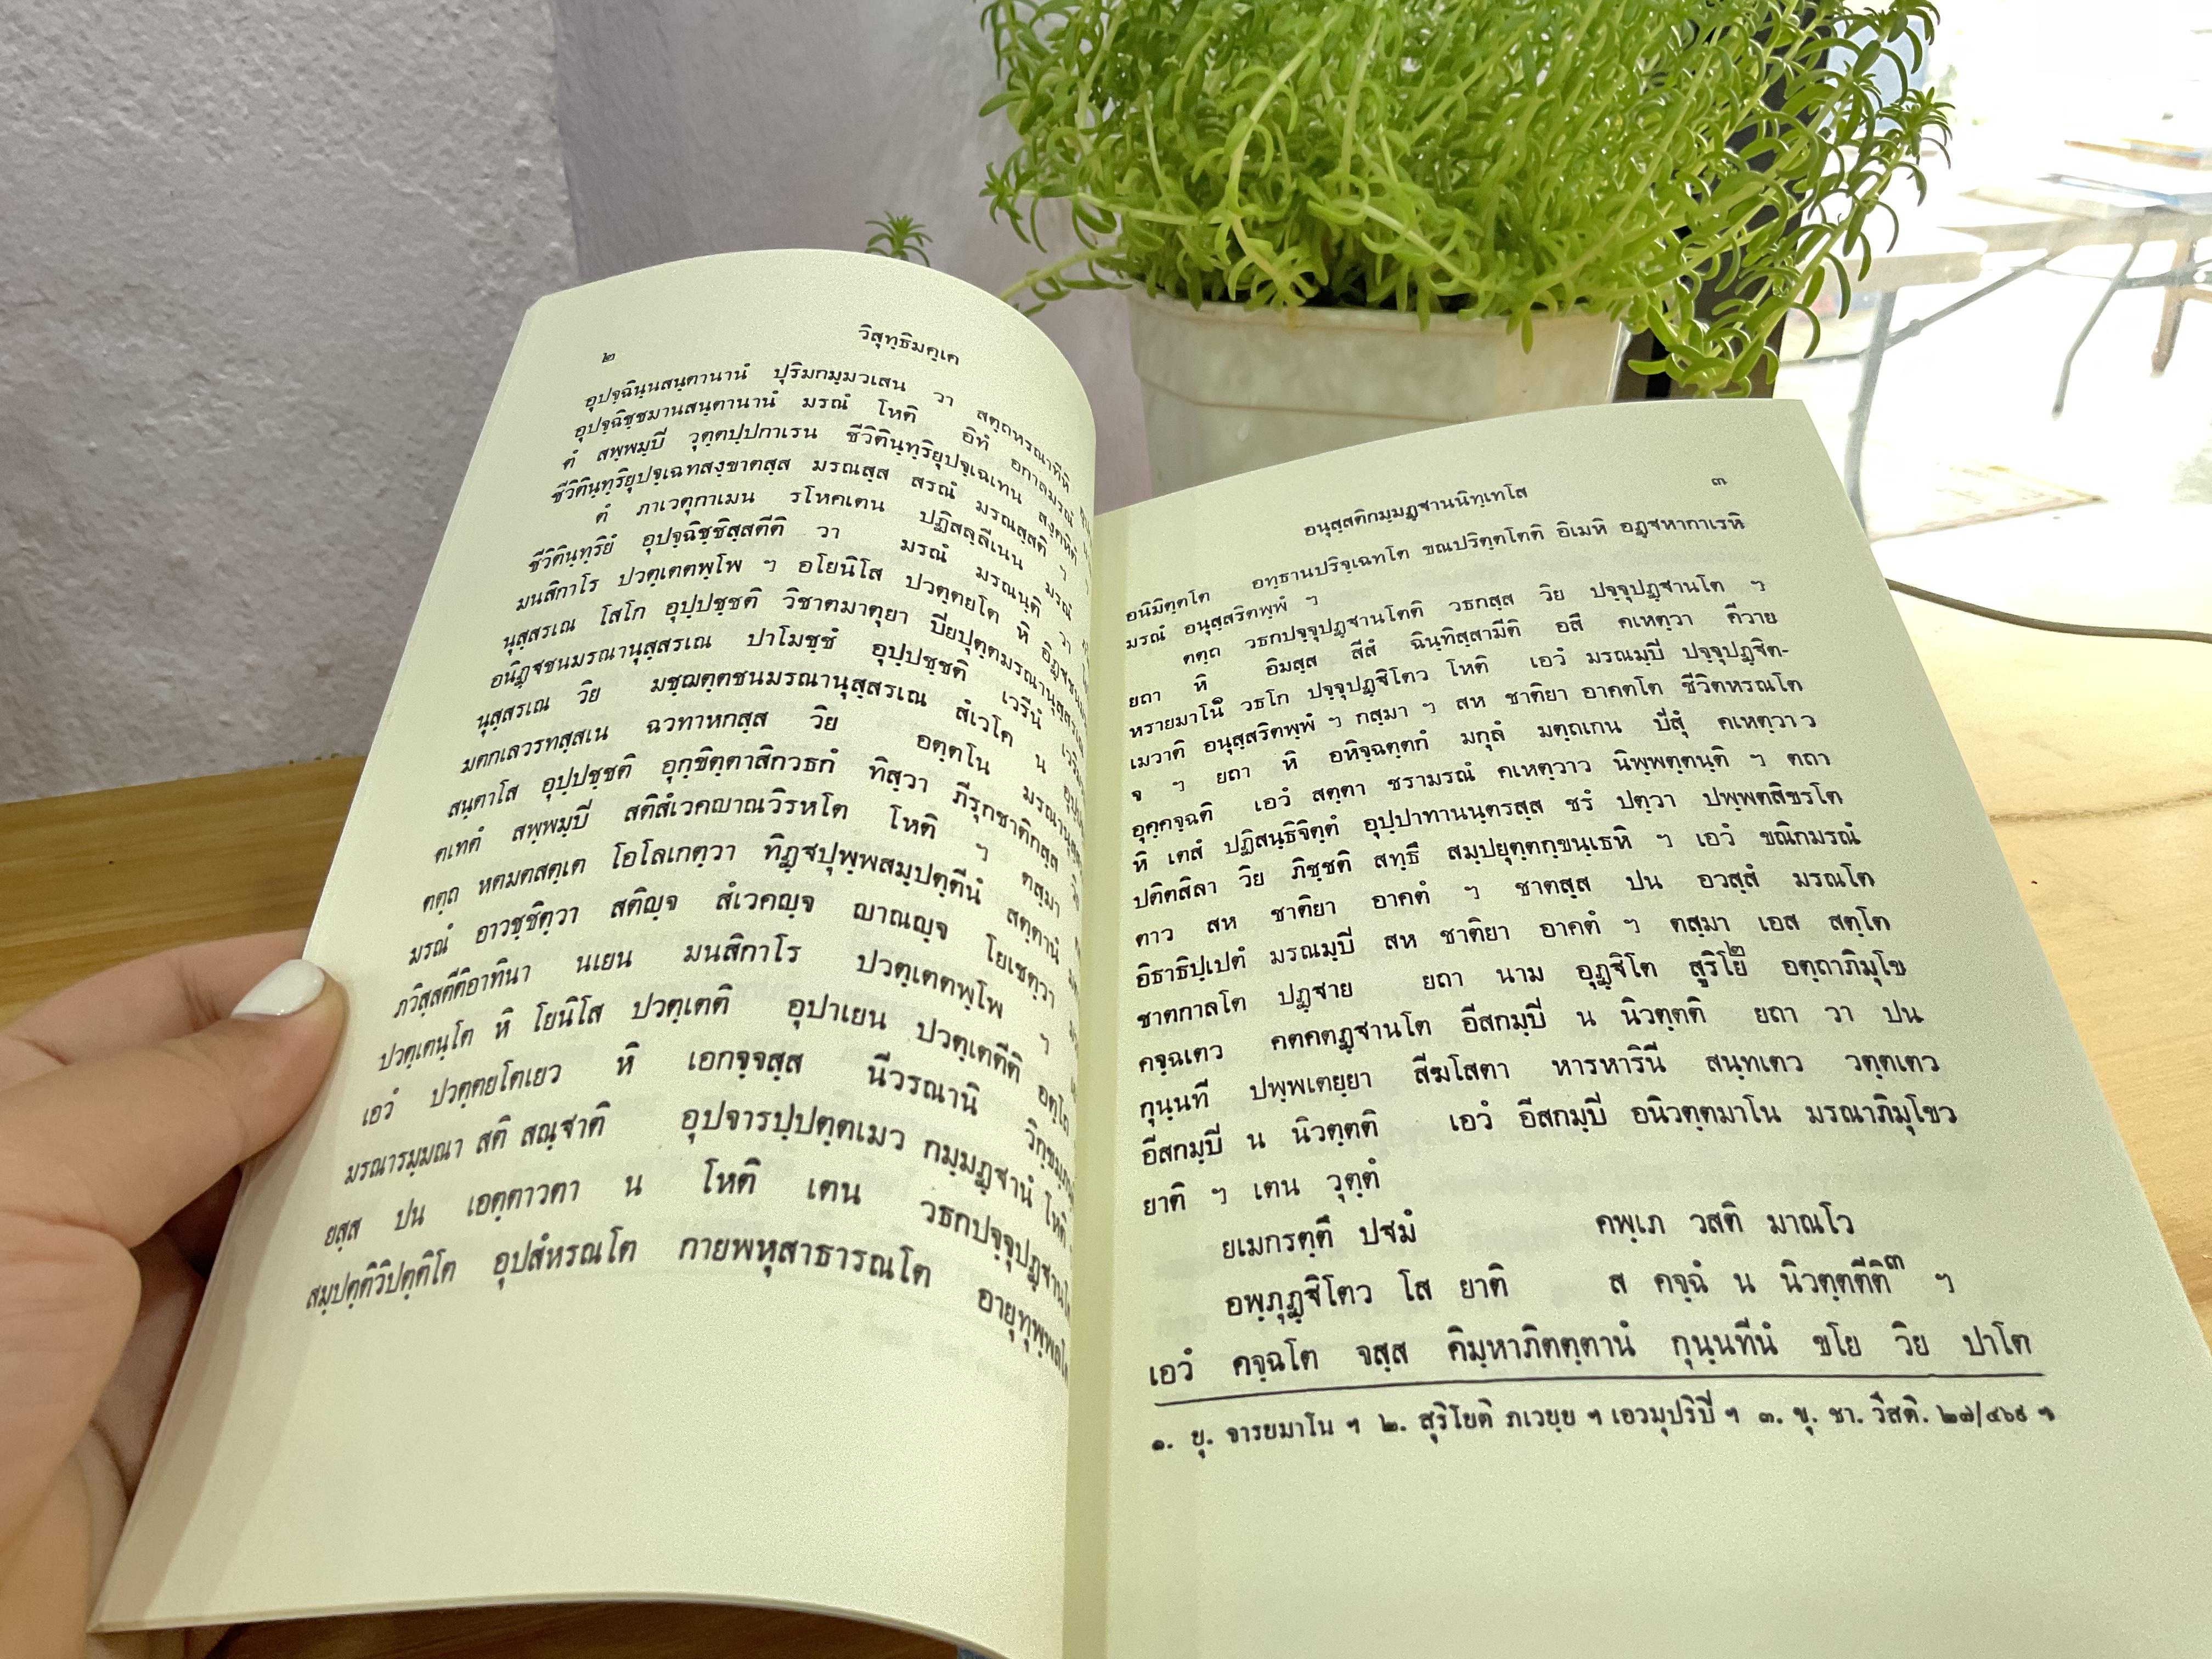 ๒ วิสุทฺธิมคฺเค
อุปจฺฉินฺนสนฺตานานํ ปุริมกมฺมวเสน วา สตฺถหรณาทีหิ
อุปจฺฉิชฺชมานสนฺตานานํ มรณํ โหติ อิทํ อกาลมรณํ
ตํ สพฺพมฺปิ วุตฺตปฺปกาเรน ชีวิตินฺทฺริยุปจฺเฉเทน สงฺคหิตํ
ชีวิตินฺทฺริยุปจฺเฉทสงฺขาตสฺส มรณสฺส สรณํ มรณสฺสติ ฯ
ตํ ภาเวตุกาเมน รโหคเตน ปฏิสลฺลีเนน มรณํ
ชีวิตินฺทฺริยํ อุปจฺฉิชฺชิสฺสตีติ วา มรณํ มรณนฺติ วา
มนสิกาโร ปวตฺเตตพฺโพ ฯ อโยนิโส ปวตฺตยโต หิ
นุสฺสรเณ โสโก อุปฺปชฺชติ วิชาตมาตุยา ปิยปุตฺตมรณานุสฺสรเณ
อนิฏฺฐชนมรณานุสฺสรเณ ปาโมชฺชํ อุปฺปชฺชติ เวรีนํ
นุสฺสรเณ วิย มชฺฌตฺตชนมรณานุสฺสรเณ สํเวโค น
มตกเลวรทสฺสเน ฉวทาหกสฺส วิย อตฺตโน
สนฺตาโส อุปฺปชฺชติ อุกฺขิตฺตาสิกวธกํ ทิสฺวา ภีรุกชาติกสฺส
ตเทตํ สพฺพมฺปิ สติสํเวคญาณวิรหโต โหติ ฯ ตสฺมา
ตตฺถ หตมตสตฺเต โอโลเกตฺวา ทิฏฺฐปุพฺพสมฺปตฺตีนํ สตฺตานํ
มรณํ อาวชฺชิตฺวา สติญฺจ สํเวคญฺจ ญาณญฺจ โยเชตฺวา
ภวิสฺสตีติอาทินา นเยน มนสิกาโร ปวตฺเตตพฺโพ ฯ
ปวตฺเตนฺโต หิ โยนิโส ปวตฺเตติ อุปาเยน ปวตฺเตตีติ อตฺโถ
เอวํ ปวตฺตยโตเยว หิ เอกจฺจสฺส นีวรณานิ
มรณารมฺมณา สติ สณฺฐาติ อุปจารปฺปตฺตเมว กมฺมฏฺฐานํ โหติ
ยสฺส ปน เอตฺตาวตา น โหติ เตน
สมฺปตฺติวิปตฺติโต อุปสํหรณโต กายพหุสาธารณโต
อนุสฺสติกมฺมฏฺฐานนิทฺเทโส ๓
อนิมิตฺตโต อทฺธานปริจฺเฉทโต ขณปริตฺตโตติ อิเมหิ อฏฺฐหากาเรหิ
มรณํ อนุสฺสริตพฺพํ ฯ
ตตฺถ วธกปจฺจุปฏฺฐานโตติ วธกสฺส วิย ปจฺจุปฏฺฐานโต ฯ
ยถา หิ อิมสฺส สีสํ ฉินฺทิสฺสามีติ อสึ คเหตฺวา คีวาย
หรายมาโน๑ วธโก ปจฺจุปฏฺฐิโตว โหติ เอวํ มรณมฺปิ ปจฺจุปฏฺฐิต-
เมวาติ อนุสฺสริตพฺพํ ฯ กสฺมา ฯ สห ชาติยา อาคตโต ชีวิตหรณโต
จ ฯ ยถา หิ อหิจฺฉตฺตกํ มกุลํ มตฺถเกน ปํสุํ คเหตฺวาว
อุคฺคจฺฉติ เอวํ สตฺตา ชรามรณํ คเหตฺวาว นิพฺพตฺตนฺติ ฯ ตถา
หิ เตสํ ปฏิสนฺธิจิตฺตํ อุปฺปาทานนฺตรสฺส ชรํ ปตฺวา ปพฺพตสิขรโต
ปติตสิลา วิย ภิชฺชติ สทฺธึ สมฺปยุตฺตกฺขนฺเธหิ ฯ เอวํ ขณิกมรณํ
ตาว สห ชาติยา อาคตํ ฯ ชาตสฺส ปน อวสฺสํ มรณโต
อิธาธิปฺเปตํ มรณมฺปิ สห ชาติยา อาคตํ ฯ ตสฺมา เอส สตฺโต
ชาตกาลโต ปฏฺฐาย ยถา นาม อุฏฺฐิโต สูริโย๒ อตฺถาภิมุโข
คจฺฉเตว คตคตฏฺฐานโต อีสกมฺปิ น นิวตฺตติ ยถา วา ปน
กุนฺนที ปพฺพเตยฺยา สีฆโสตา หารหารินี สนฺทเตว วตฺตเตว
อีสกมฺปิ น นิวตฺตติ เอวํ อีสกมฺปิ อนิวตฺตมาโน มรณาภิมุโขว
ยาติ ฯ เตน วุตฺตํ
ยเมกรตฺตึ ปฐมํ คพฺเภ วสติ มาณโว
อพฺภุฏฺฐิโตว โส ยาติ ส คจฺฉํ น นิวตฺตตีติ๓ ฯ
เอวํ คจฺฉโต จสฺส คิมฺหาภิตตฺตานํ กุนฺนทีนํ ขโย วิย ปาโต
๑. ยุ. จารยมาโน ฯ ๒. สุริโยติ ภเวยฺย ฯ เอวมุปริปิ ฯ ๓. ขุ. ชา. วีสติ. ๒๗/๔๖๙ ฯ